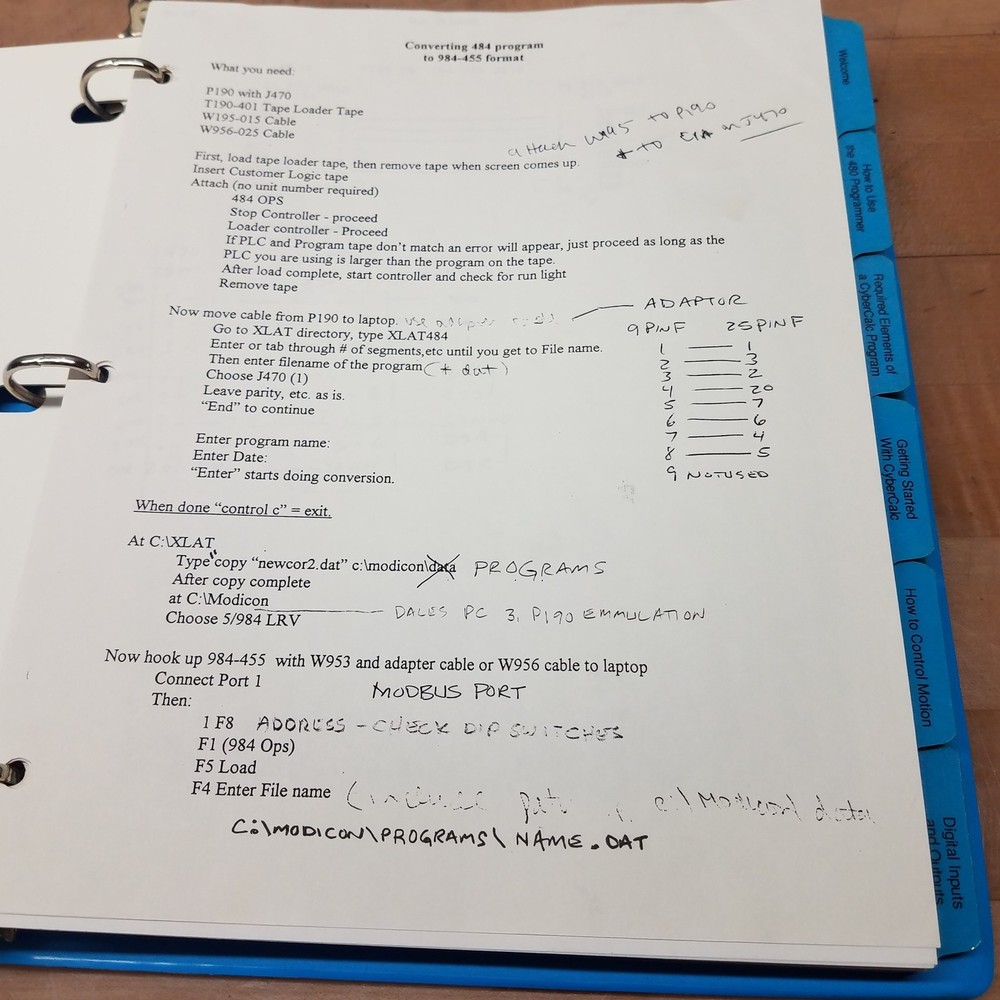 Converting 484 program
to 984-455 format
What you need:
P190 with J470
T190-401 Tape Loader Tape
W195-015 Cable
W956-025 Cable
attach W195 to P190
+ to EIA on J470
First, load tape loader tape, then remove tape when screen comes up.
Insert Customer Logic tape
Attach (no unit number required)
484 OPS
Stop Controller - proceed
Loader controller - Proceed
If PLC and Program tape don't match an error will appear, just proceed as long as the
PLC you are using is larger than the program on the tape.
After load complete, start controller and check for run light
Remove tape
Now move cable from P190 to laptop. use
Go to XLAT directory, type XLAT484
Enter or tab through # of segments,etc until you get to File name.
Then enter filename of the program (+ dat)
Choose J470 (1)
Leave parity, etc. as is.
"End" to continue
Enter program name:
Enter Date:
"Enter" starts doing conversion.
ADAPTOR
9PINF 25PINF
1 1
2 3
3 2
4 20
5 7
6 6
7 4
8 5
9 NOTUSED
When done "control c" = exit.
At C:\XLAT
Type "copy "newcor2.dat" c:\modicon\data PROGRAMS
After copy complete
at C:\Modicon
Choose 5/984 LRV
DALES PC 3. P190 EMMULATION
Now hook up 984-455 with W953 and adapter cable or W956 cable to laptop
Connect Port 1 MODBUS PORT
Then:
1 F8 ADDRESS - CHECK DIP SWITCHES
F1 (984 Ops)
F5 Load
F4 Enter File name ( c:\Modicon\ data
C:\MODICON\PROGRAMS\ NAME.DAT
Welcome
How to Use
the 480 Programmer
Required Elements of
a CyberCalc Program
Getting Started
With CyberCalc
How to Control Motion
Digital Inputs
and Outputs